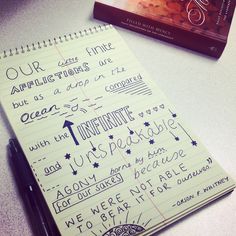 OUR little finite
AFFLICTIONS are
but as a drop in the
Ocean compared
with the INFINITE
and unspeakable
AGONY borne by him
for our sakes because
WE WERE NOT ABLE
TO BEAR IT FOR ourselves"
-ORSON F. WHITNEY